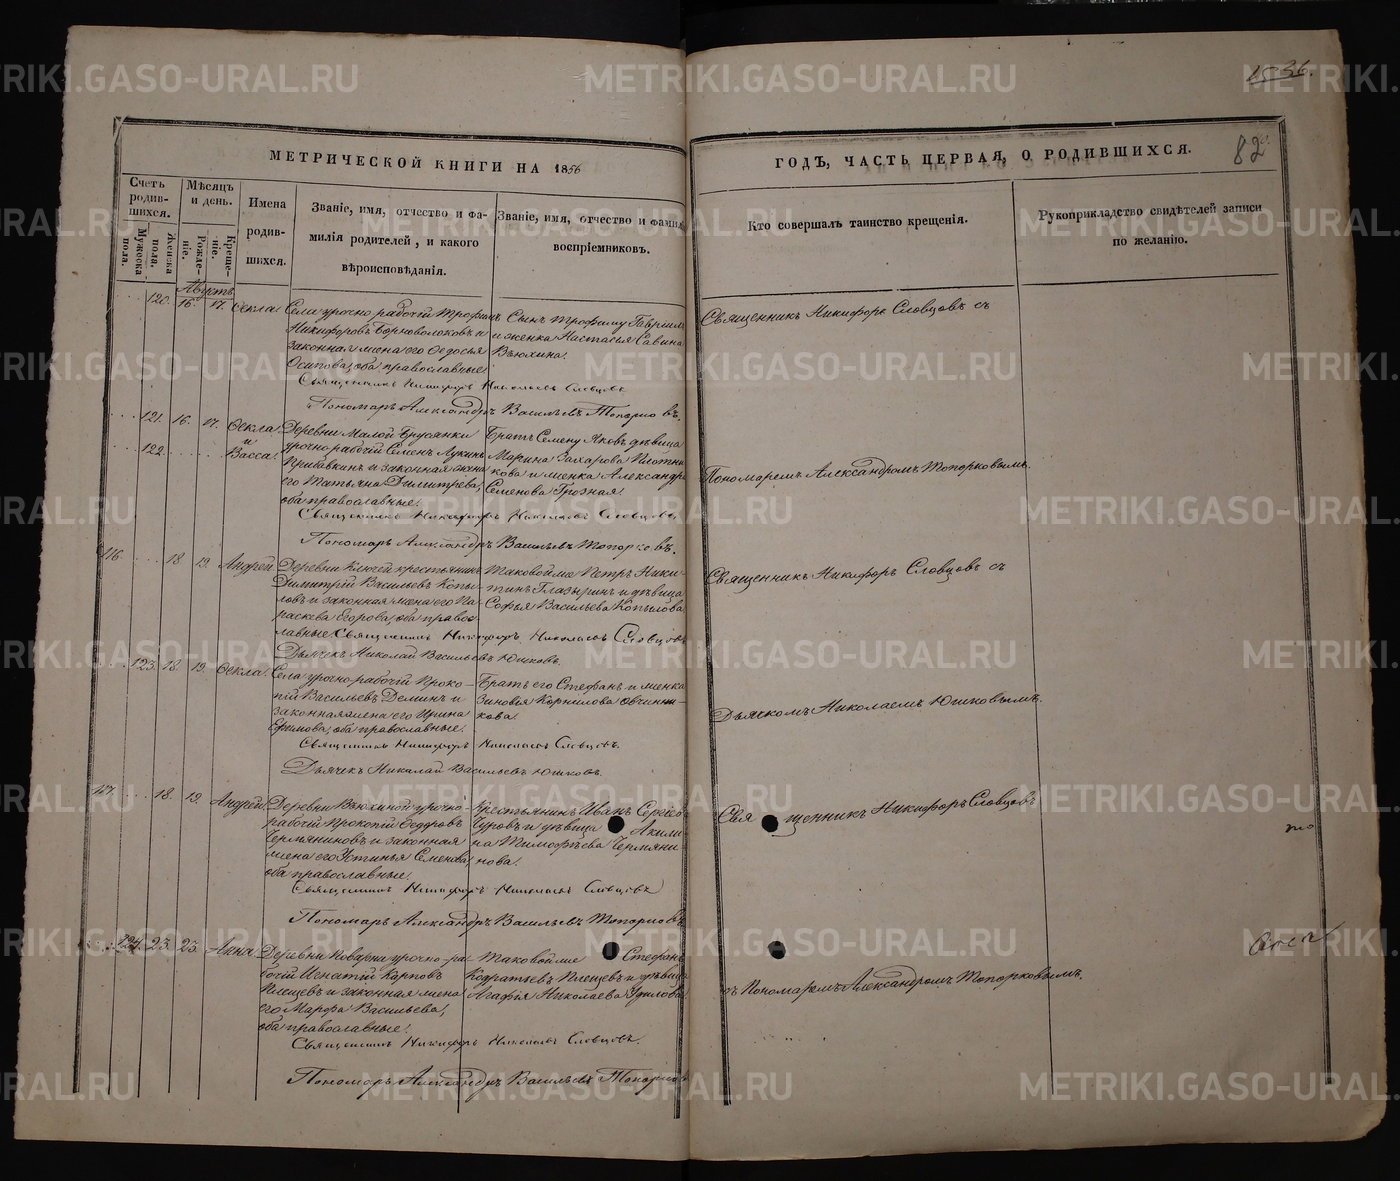 METRIKI.GASO-URAL.RU
15 36.
МЕТРИЧЕСКОЙ КНИГИ НА 1856
ГОДЪ, ЧАСТЬ ПЕРВАЯ, О РОДИВШИХСЯ.
82
Счетъ родившихся.
Мужеска пола.
Женска пола.
Мѣсяцъ и день.
Рожденіе.
Крещеніе.
Имена родившихся.
Званіе, имя, отчество и фамилія родителей, и какого вѣроисповѣданія.
Званіе, имя, отчество и фамил воспріемниковъ.
Кто совершалъ таинство крещенія.
Рукоприкладство свидѣтелей записи по желанію.
Августъ
120. 16. 17. Ѳекла
Села урочно рабочій Трофимъ
Никифоровъ и
законная жена его Ѳедосья
Осипова, оба православные.
Сынъ Трофиму Гавріилъ
и женка Настасья Савина
Вьюхина.
Священникъ Никифоръ Словцовъ съ
Священникъ Никифоръ Николаевъ Словцовъ
Пономарь Александръ Васильевъ Топорковъ.
121. 16. 17. Ѳекла
и
122. Васса.
Деревни Малой Брусянки
урочнорабочій Семенъ Лукинъ
Прибавкинъ и законная жена
его Татьяна Димитрева,
оба православные.
Братъ Семену Яковъ дѣвица
Марина Захарова Плотни
кова и женка Александра
Семенова Грозная.
Пономаремъ Александромъ Топорковымъ.
Священникъ Никифоръ Николаевъ Словцовъ
Пономарь Александръ Васильевъ Топорковъ.
116. 18. 19. Андрей
Деревни Ключей крестьянинъ
Димитрій Васильевъ Копы
ловъ и законная жена его Па
раскева Егорова, оба право
славные
Таковой же Петръ Ники
тинъ Глазыринъ и дѣвица
Софья Васильева Копылова
Священникъ Никифоръ Словцовъ съ
Священникъ Никифоръ Николаевъ Словцовъ
Дьячекъ Николай Васильевъ Юшковъ.
123. 18. 19. Ѳекла.
Села урочно-рабочій Проко-
пій Васильевъ Деминъ и
законная жена его Ирина
Ефимова, оба православные.
Братъ его Стефанъ и женка
Зиновья Корнилова Овчинни-
кова.
Дьячкомъ Николаемъ Юшковымъ.
Священникъ Никифоръ Николаевъ Словцовъ.
Дьячекъ Николай Васильевъ Юшковъ.
117. 18. 19. Андрей
Деревни Вьюхиной урочно-
рабочій Прокопій Ѳедоровъ
Чермяниновъ и законная
жена его Устинья Семенова,
оба православные.
Крестьянинъ Иванъ Сергѣевъ
Чуровъ и дѣвица Акили
на Тимофѣева Чермяни
нова.
Священникъ Никифоръ Словцовъ
Священникъ Никифоръ Николаевъ Словцовъ
Пономарь Александръ Васильевъ Топорковъ
124. 23. 23. Анна
Деревни Поварни урочно-ра
бочій Игнатій Карповъ
Плещевъ и законная жена
его Марфа Васильева,
оба православные.
Таковой же Стефанъ
Кодратьевъ Плещевъ и дѣвица
Агафья Николаева Удилова
съ Пономаремъ Александромъ Топорковымъ.
Священникъ Никифоръ Николаевъ Словцовъ.
Пономарь Александръ Васильевъ Топорковъ